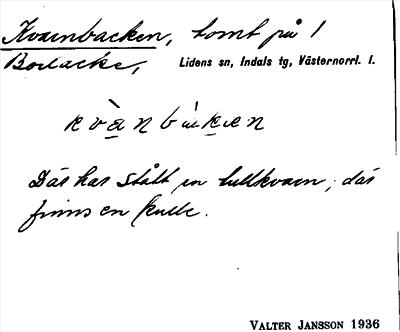 Kvarnbacken, tomt på 1
Backe, Lidens sn, Indals tg, Västernorrl. l.
Där har stått en tullkvarn; där
finns en kulle.
VALTER JANSSON 1936